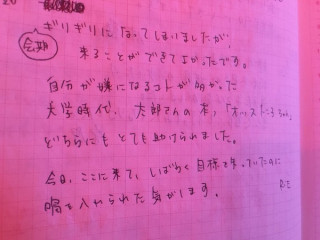 ぎりぎりになってしまいましたが、
会期
来ることができてよかったです。
自分が嫌になるコトが多かった
大学時代、太郎さんの本、「
どちらにもとても助けられました。
今日、ここに来て、しばらく目標を失っていたのに
喝を入れられた気がします。